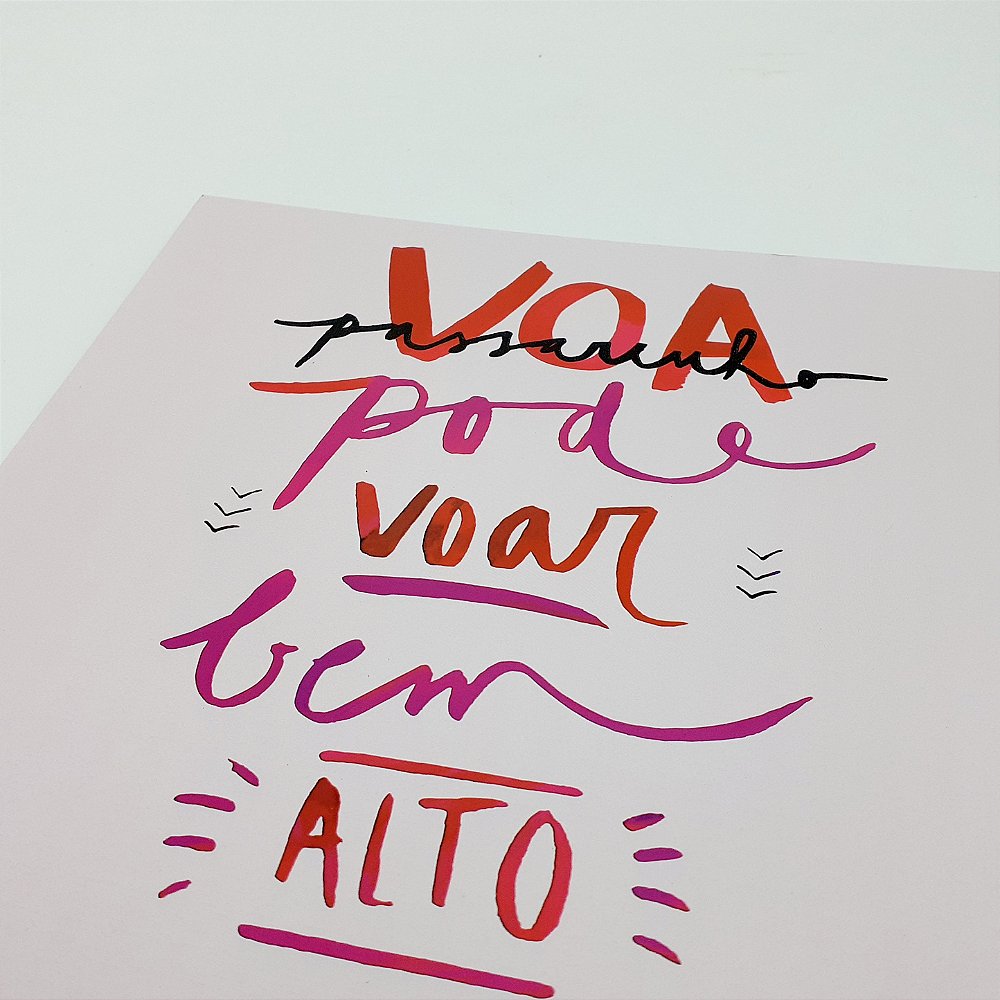 VOA
passarinho
pode
voar
bem
ALTO